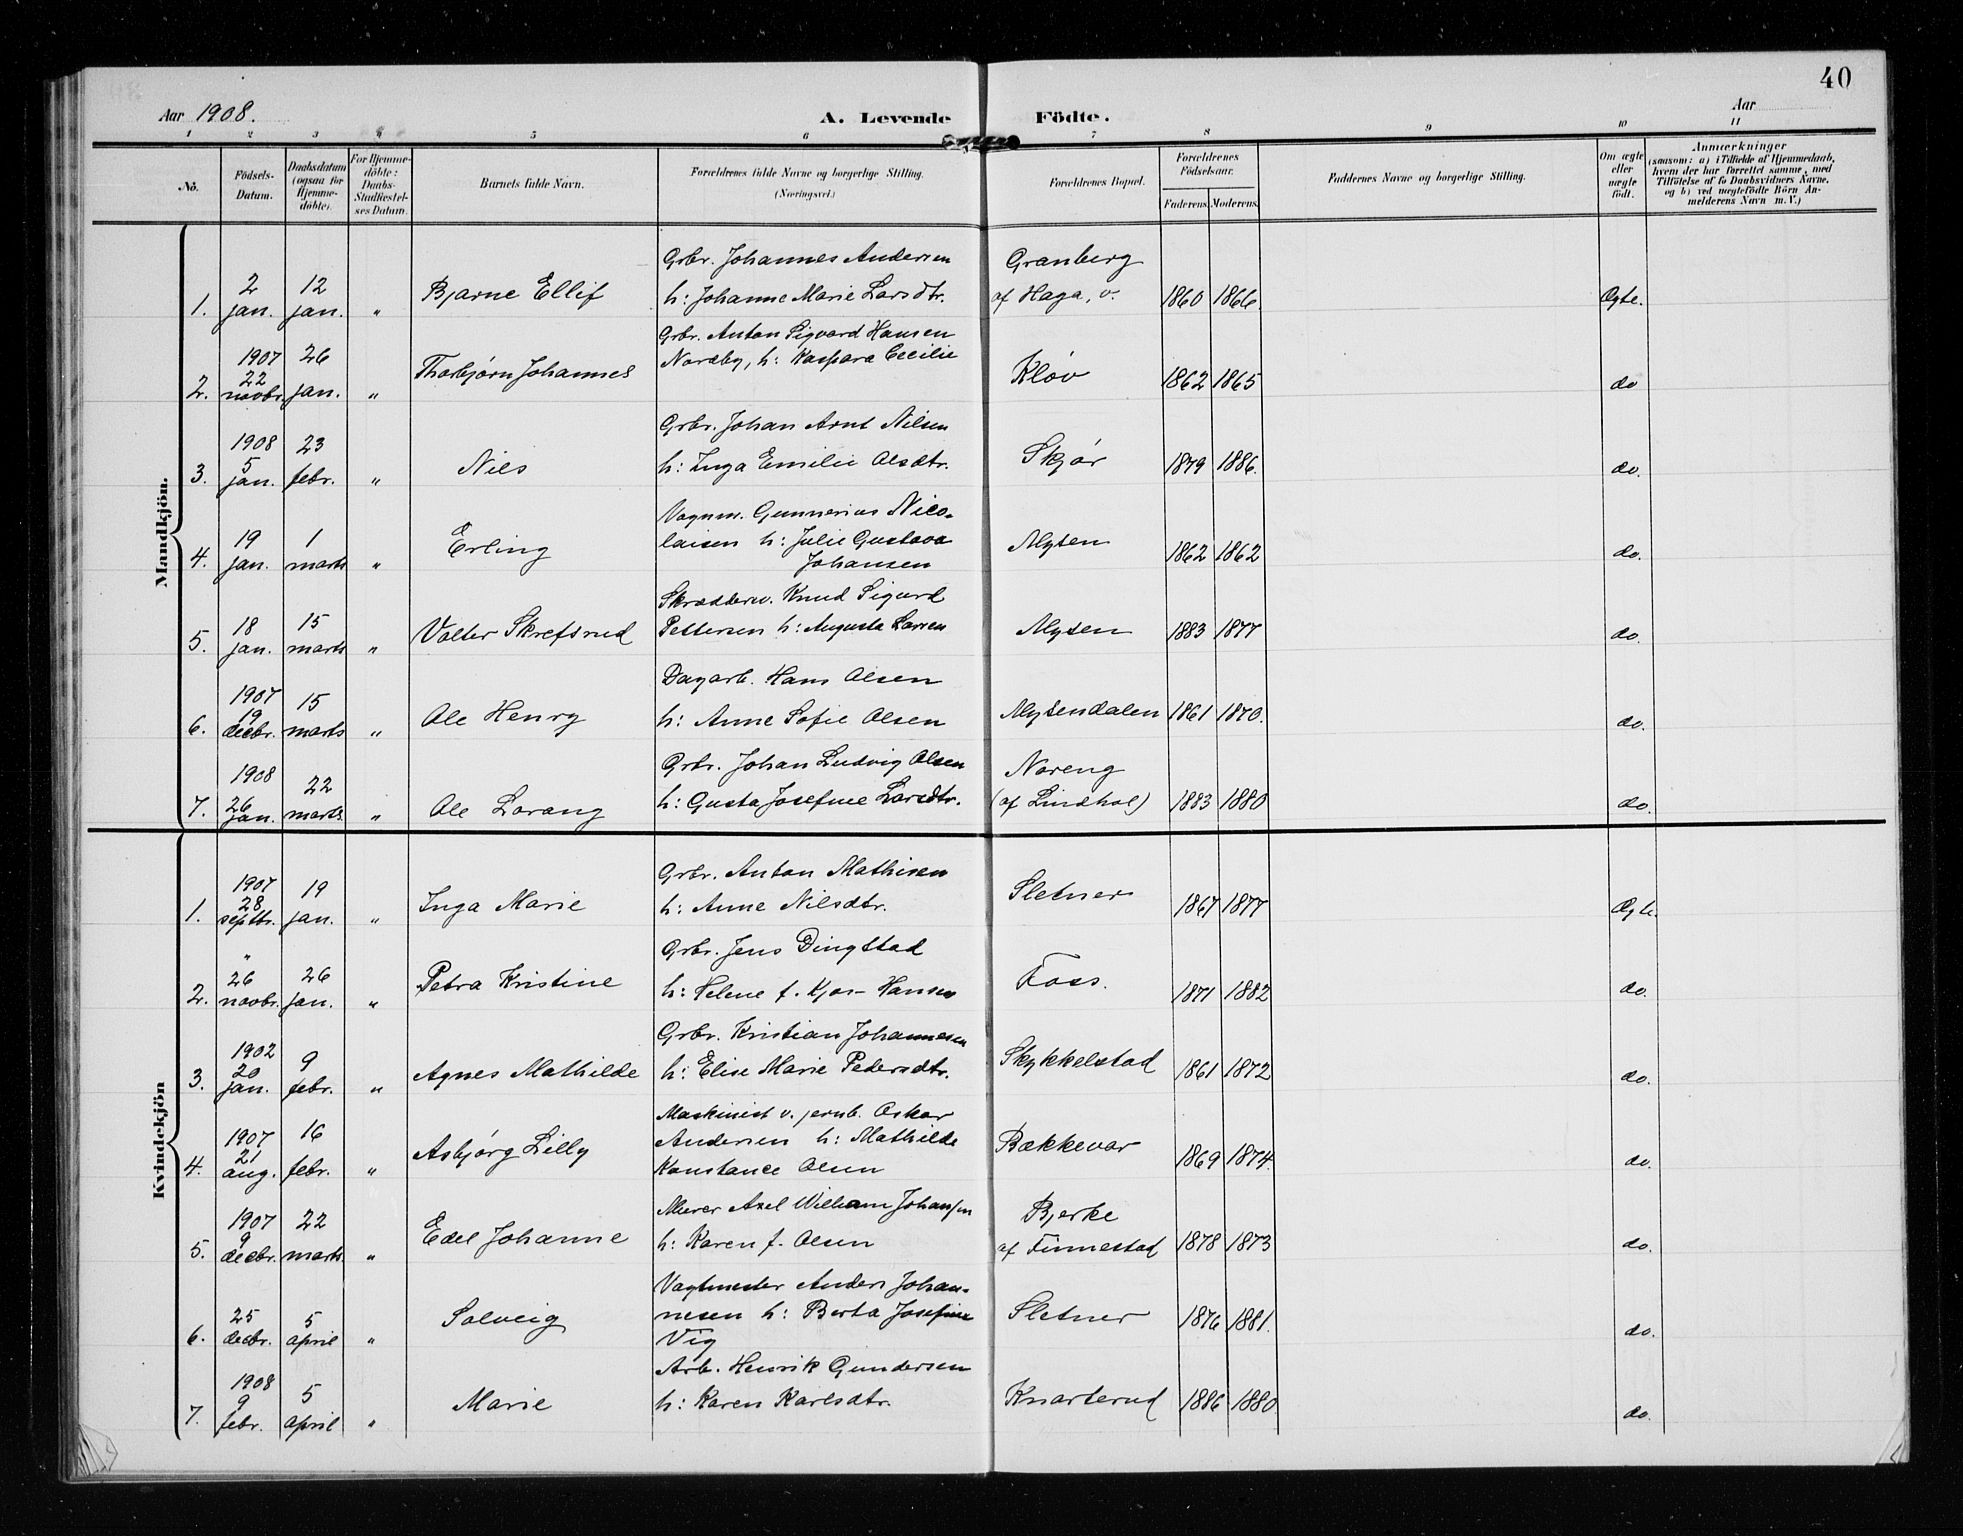 40
Aar 1908. A. Levende Födte. Aar
1 2 3 4 5 6 7 8 9 10 11
No. Födsels-Datum. Daabsdatum (ogsaa for Hjemme-döbte). For Hjemme-döbte: Daabs-Stadfæstel-ses Datum. Barnets fulde Navn. Forældrenes fulde Navne og borgerlige Stilling. (Næringsvei.) Forældrenes Bopæl. Forældrenes Födselsaar. Faderens. Moderens. Faddernes Navne og borgerlige Stilling. Om ægte eller uægte födt. Anmærkninger (saasom: a) i Tilfælde af Hjemmedaab, hvem der har forrettet samme, med Tilföielse af to Daabsvidners Navne, og b) ved uægtefödte Börn An-melderens Navn m. V.)
Mandkjön.
Grbr. Johannes Andersen Granberg
1. 2 jan. 12 jan. " Bjarne Ellif h: Johanne Marie Larsdtr. af Haga, v. 1860 1866. Ægte.
Grbr. Anton Sigvard Hansen
2. 1907 22 novbr. 26 jan. " Thorbjørn Johannes Nordby, h: Kaspara Cecilie Kløv 1862 1865 do
Grbr. Johan Arnt Nilsen
3. 1908 5 jan. 23 febr. " Nils h: Inga Emilie Olsdtr. Skjør 1879 1886. do.
Vognm. Gunnerius Nico-
4. 19 jan. 1 marts " Erling laisen h: Julie Gustava Mysen 1862 1862 do.
Johansen
Skrædderm. Knud Sigurd
5. 18 jan. 15 marts " Valter Skrefsrud Pettersen h: Augusta Larsen Mysen 1883 1877 do.
Dagarb. Hans Olsen
6. 1907 19 decbr. 15 marts " Ole Henry h: Anne Sofie Olsen Mysendalen 1861 1870. do.
Grbr. Johan Ludvig Olsen Noreng
7. 1908 26 jan. 22 marts. " Ole Lorang h: Gusta Josefine Larsdtr. (af Lindhol) 1883 1880 do.
Kvindekjön
Grbr. Anton Mathisen
1. 1907 28 septbr. 19 jan. " Inga Marie h: Anne Nilsdtr. Sletner 1867 1877 Ægte.
Grbr. Jens Dingstad
2. " 26 novbr. 26 jan. " Petra Kristine h: Helene f. Kjos-Hansen Foss. 1871 1882 do.
Grbr. Kristian Johannesen
3. 1902 20 jan. 9 febr. " Agnes Mathilde h: Elise Marie Pedersdtr. Skykkelstad 1861 1872 do.
Maskinist v. jernb. Oskar
4. 1907 21 aug. 16 febr. " Asbjørg Lilly Andersen h: Mathilde Bækkevar 1869 1874. do.
Konstance Olsen
Murer Axel Wilhelm Johansen Bjerke
5. 1907 9 decbr. 22 marts. " Edel Johanne h: Karen f. Olsen af Finnestad 1878 1873 do.
Vagtmester Anders Johan-
6. 25 decbr. 5 april " Solveig nesen h: Berta Josefine Sletner 1876 1881. do.
Vig
Arb. Henrik Gundersen
7. 1908 9 febr. 5 april " Marie h: Karen Karlsdtr. Knarterud 1886 1880 do.